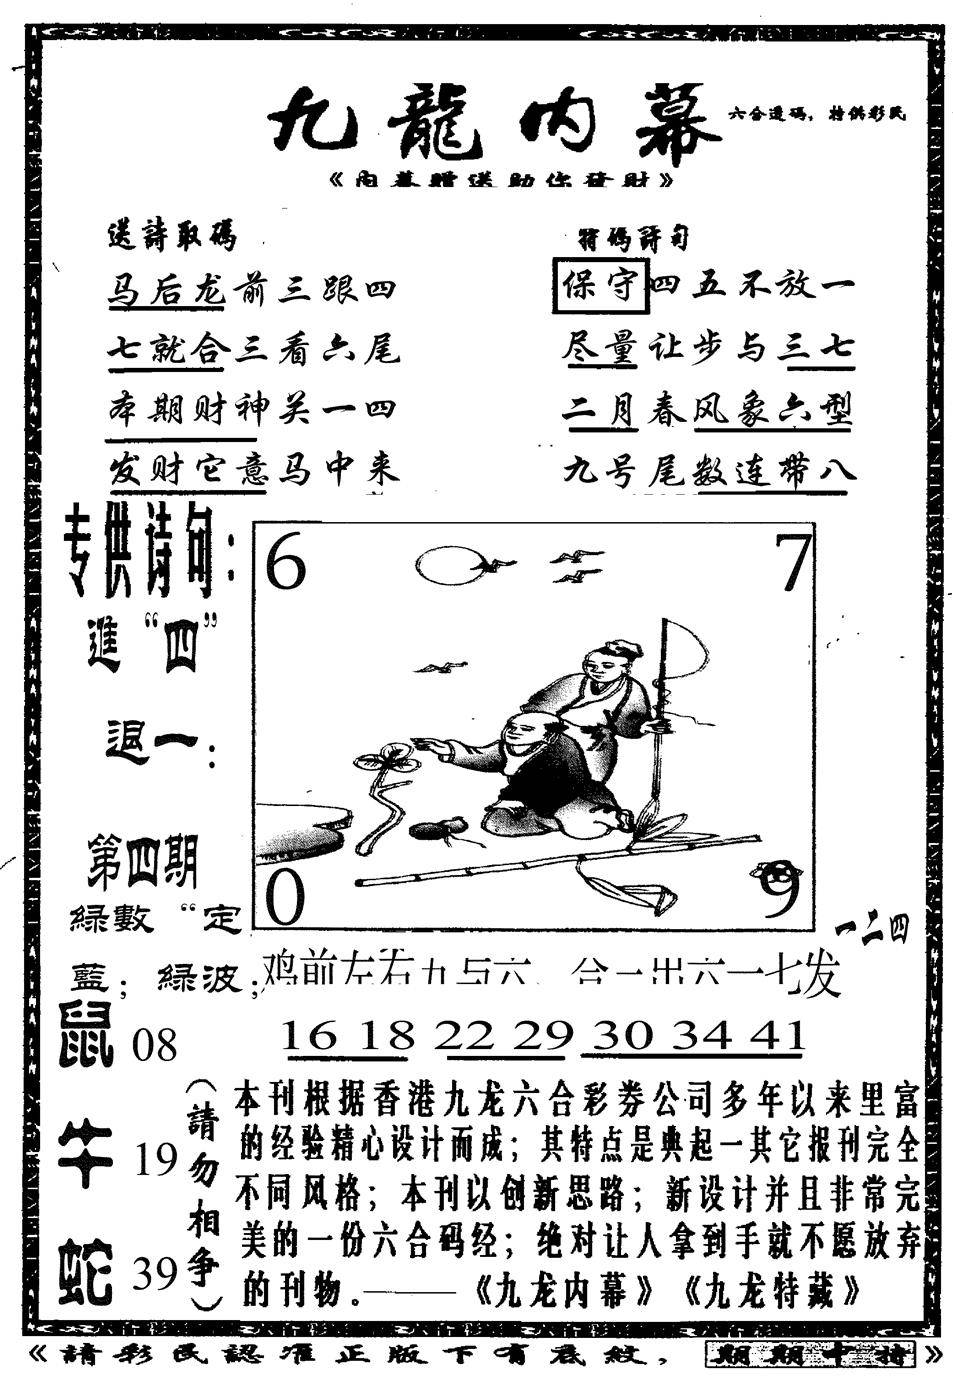 九龍内幕
六合透码，特供彩民
《内幕贈送助你發財》
送詩取碼
马后龙前三跟四
七就合三看六尾
本期财神关一四
发财它意马中来
特碼詩句
保守四五不放一
尽量让步与三七
二月春风象六型
九号尾数连带八
专供诗句：
進“四”
退一：
第四期
緑數“定
藍；緑波；
6
7
0
9
一二四
鸡前左右九与六
合一出六一七发
鼠 08
牛 19
蛇 39
16 18 22 29 30 34 41
（請勿相争）
本刊根据香港九龙六合彩券公司多年以来里富
的经验精心设计而成；其特点是典起一其它报刊完全
不同风格；本刊以创新思路；新设计并且非常完
美的一份六合码经；绝对让人拿到手就不愿放弃
的刊物。——《九龙内幕》《九龙特藏》
《請彩民認准正版下有底紋，期期中特》